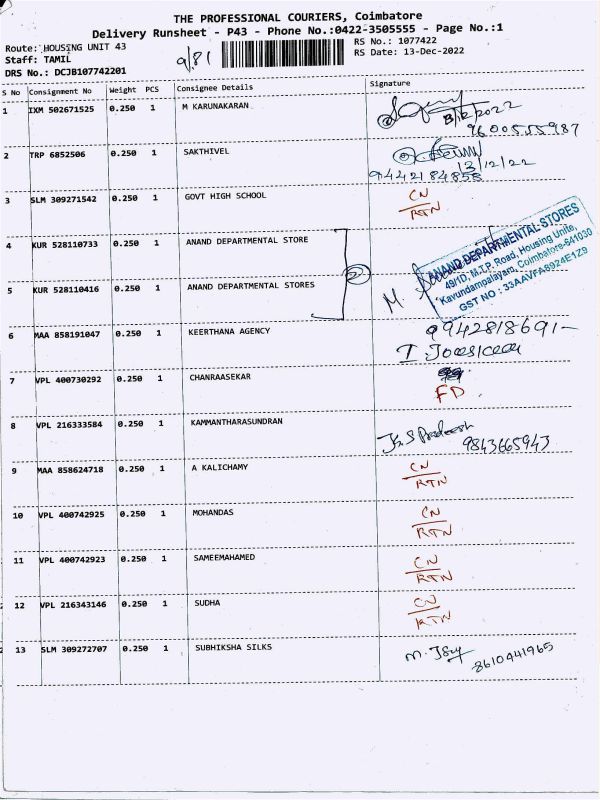 THE PROFESSIONAL COURIERS, Coimbatore
Delivery Runsheet - P43 - Phone No.:0422-3505555 - Page No.:1
Route: HOUSING UNIT 43 RS No.: 1077422
Staff: TAMIL 9/81 RS Date: 13-Dec-2022
DRS No.: DCJB107742201
S No Consignment No Weight PCS Consignee Details Signature
1 IXM 502671525 0.250 1 M KARUNAKARAN 13/12/2022
9600555987
2 TRP 6852506 0.250 1 SAKTHIVEL 13/12/22
9442184858
3 SLM 309271542 0.250 1 GOVT HIGH SCHOOL CN
RTN
4 KUR 528110733 0.250 1 ANAND DEPARTMENTAL STORE
2
5 KUR 528110416 0.250 1 ANAND DEPARTMENTAL STORES M.
ANAND DEPARTMENTAL STORES
49/1D, M.T.P. Road, Housing Unit,
Kavundampalayam, Coimbatore-641030
GST NO : 33AAVFA8924E1Z9
6 MAA 858191047 0.250 1 KEERTHANA AGENCY 9942818691-
7 VPL 400730292 0.250 1 CHANRAASEKAR FD.
8 VPL 216333584 0.250 1 KAMMANTHARASUNDRAN
9843665943
9 MAA 858624718 0.250 1 A KALICHAMY CN
RTN
10 VPL 400742925 0.250 1 MOHANDAS CN
RTN
11 VPL 400742923 0.250 1 SAMEEMAHAMED CN
RTN
12 VPL 216343146 0.250 1 SUDHA CN
RTN
13 SLM 309272707 0.250 1 SUBHIKSHA SILKS M.
8610441965